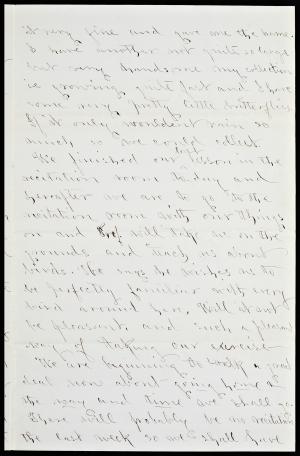 it very fine and gave me the name.
I have another not quite so large
but very handsome my collection
is growing quite fast and I have
some very pretty little butterflies
If it only wouldent rain so
much, so we could collect.
We finished our last lesson in the
recitation room to-day and
hereafter we are to go to the
recitation room with our things
on and Prof will take us on the
grounds and teach us about
birds. He says he wishes us to
be perfectly familiar with every
bird around here. Will it not
be pleasant, and such a pleasant
way of taking our exercise
We are beginning to talk a good
deal now about going home &
the way and time we shall go.
There will probably be no recitations
the last week so we shall have